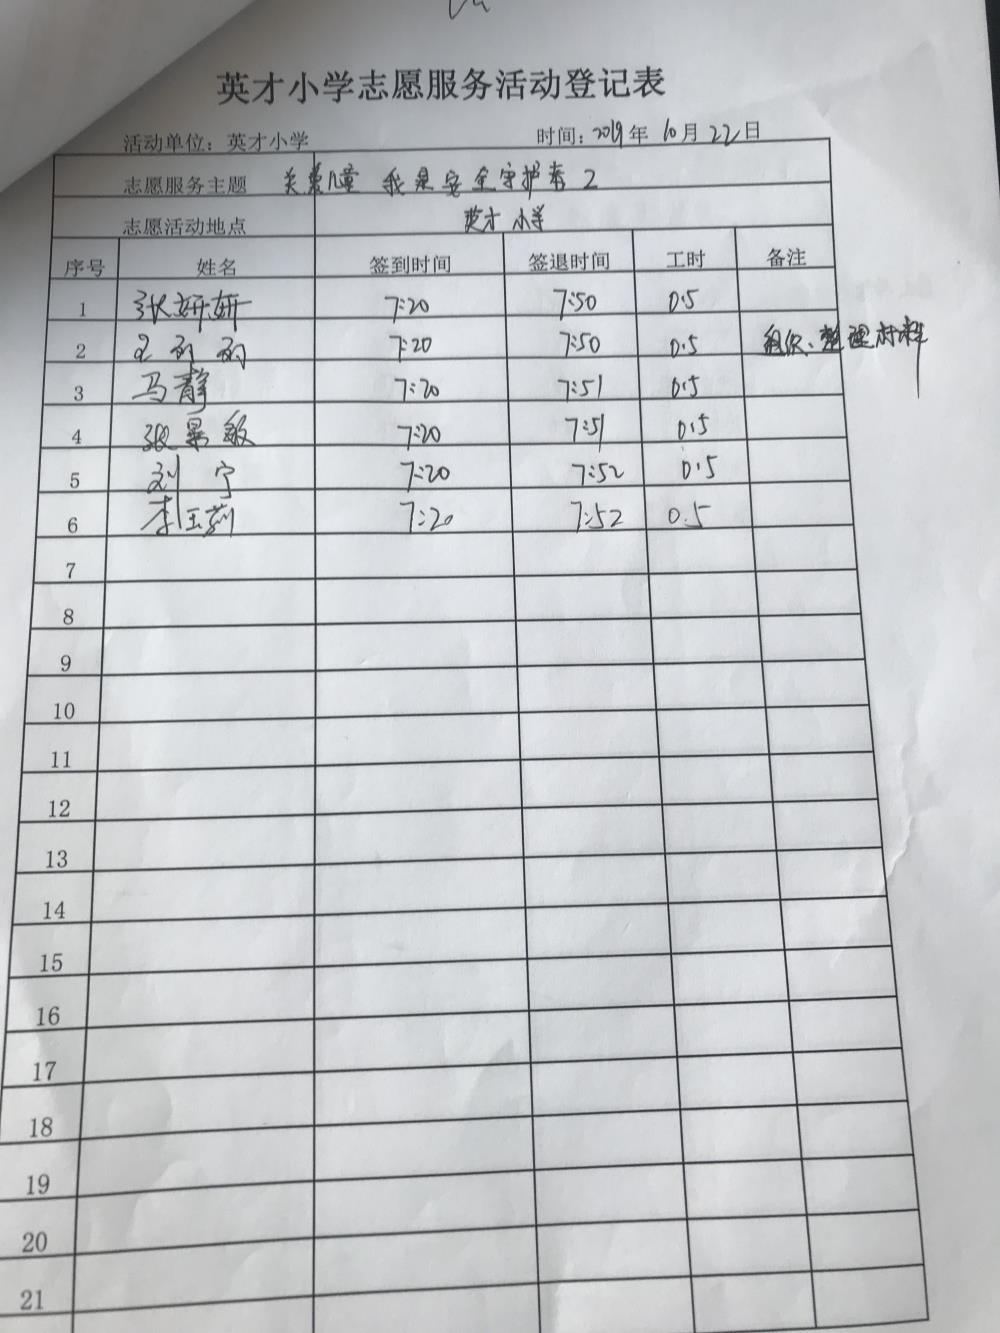 英才小学志愿服务活动登记表
活动单位：英才小学 时间：2019年10月22日
志愿服务主题 关爱儿童 我是安全守护者2
志愿活动地点 英才小学
序号 姓名 签到时间 签退时间 工时 备注
1 张妍妍 7:20 7:50 0.5
2 7:20 7:50 0.5 组织、整理材料
3 马静 7:20 7:51 0.5
4 张景敏 7:20 7:51 0.5
5 刘宁 7:20 7:52 0.5
6 李玉莉 7:20 7:52 0.5
7
8
9
10
11
12
13
14
15
16
17
18
19
20
21